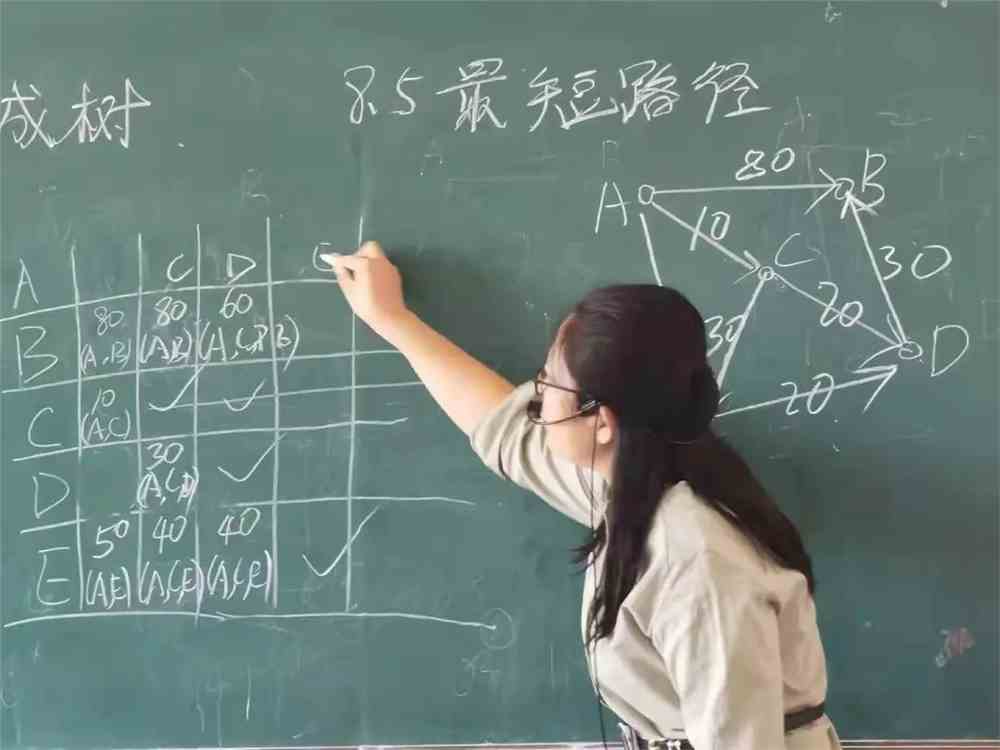 成树
8.5 最短路径
A C D E
B 80 80 60
(A,B) (A,B) (A,C,D,B)
C 10 ✓ ✓
(A,C)
D 30 ✓
(A,C,D)
E 50 40 40 ✓
(A,E) (A,C,E) (A,C,E)
A 80 B
10 C 30
30 20 D
20